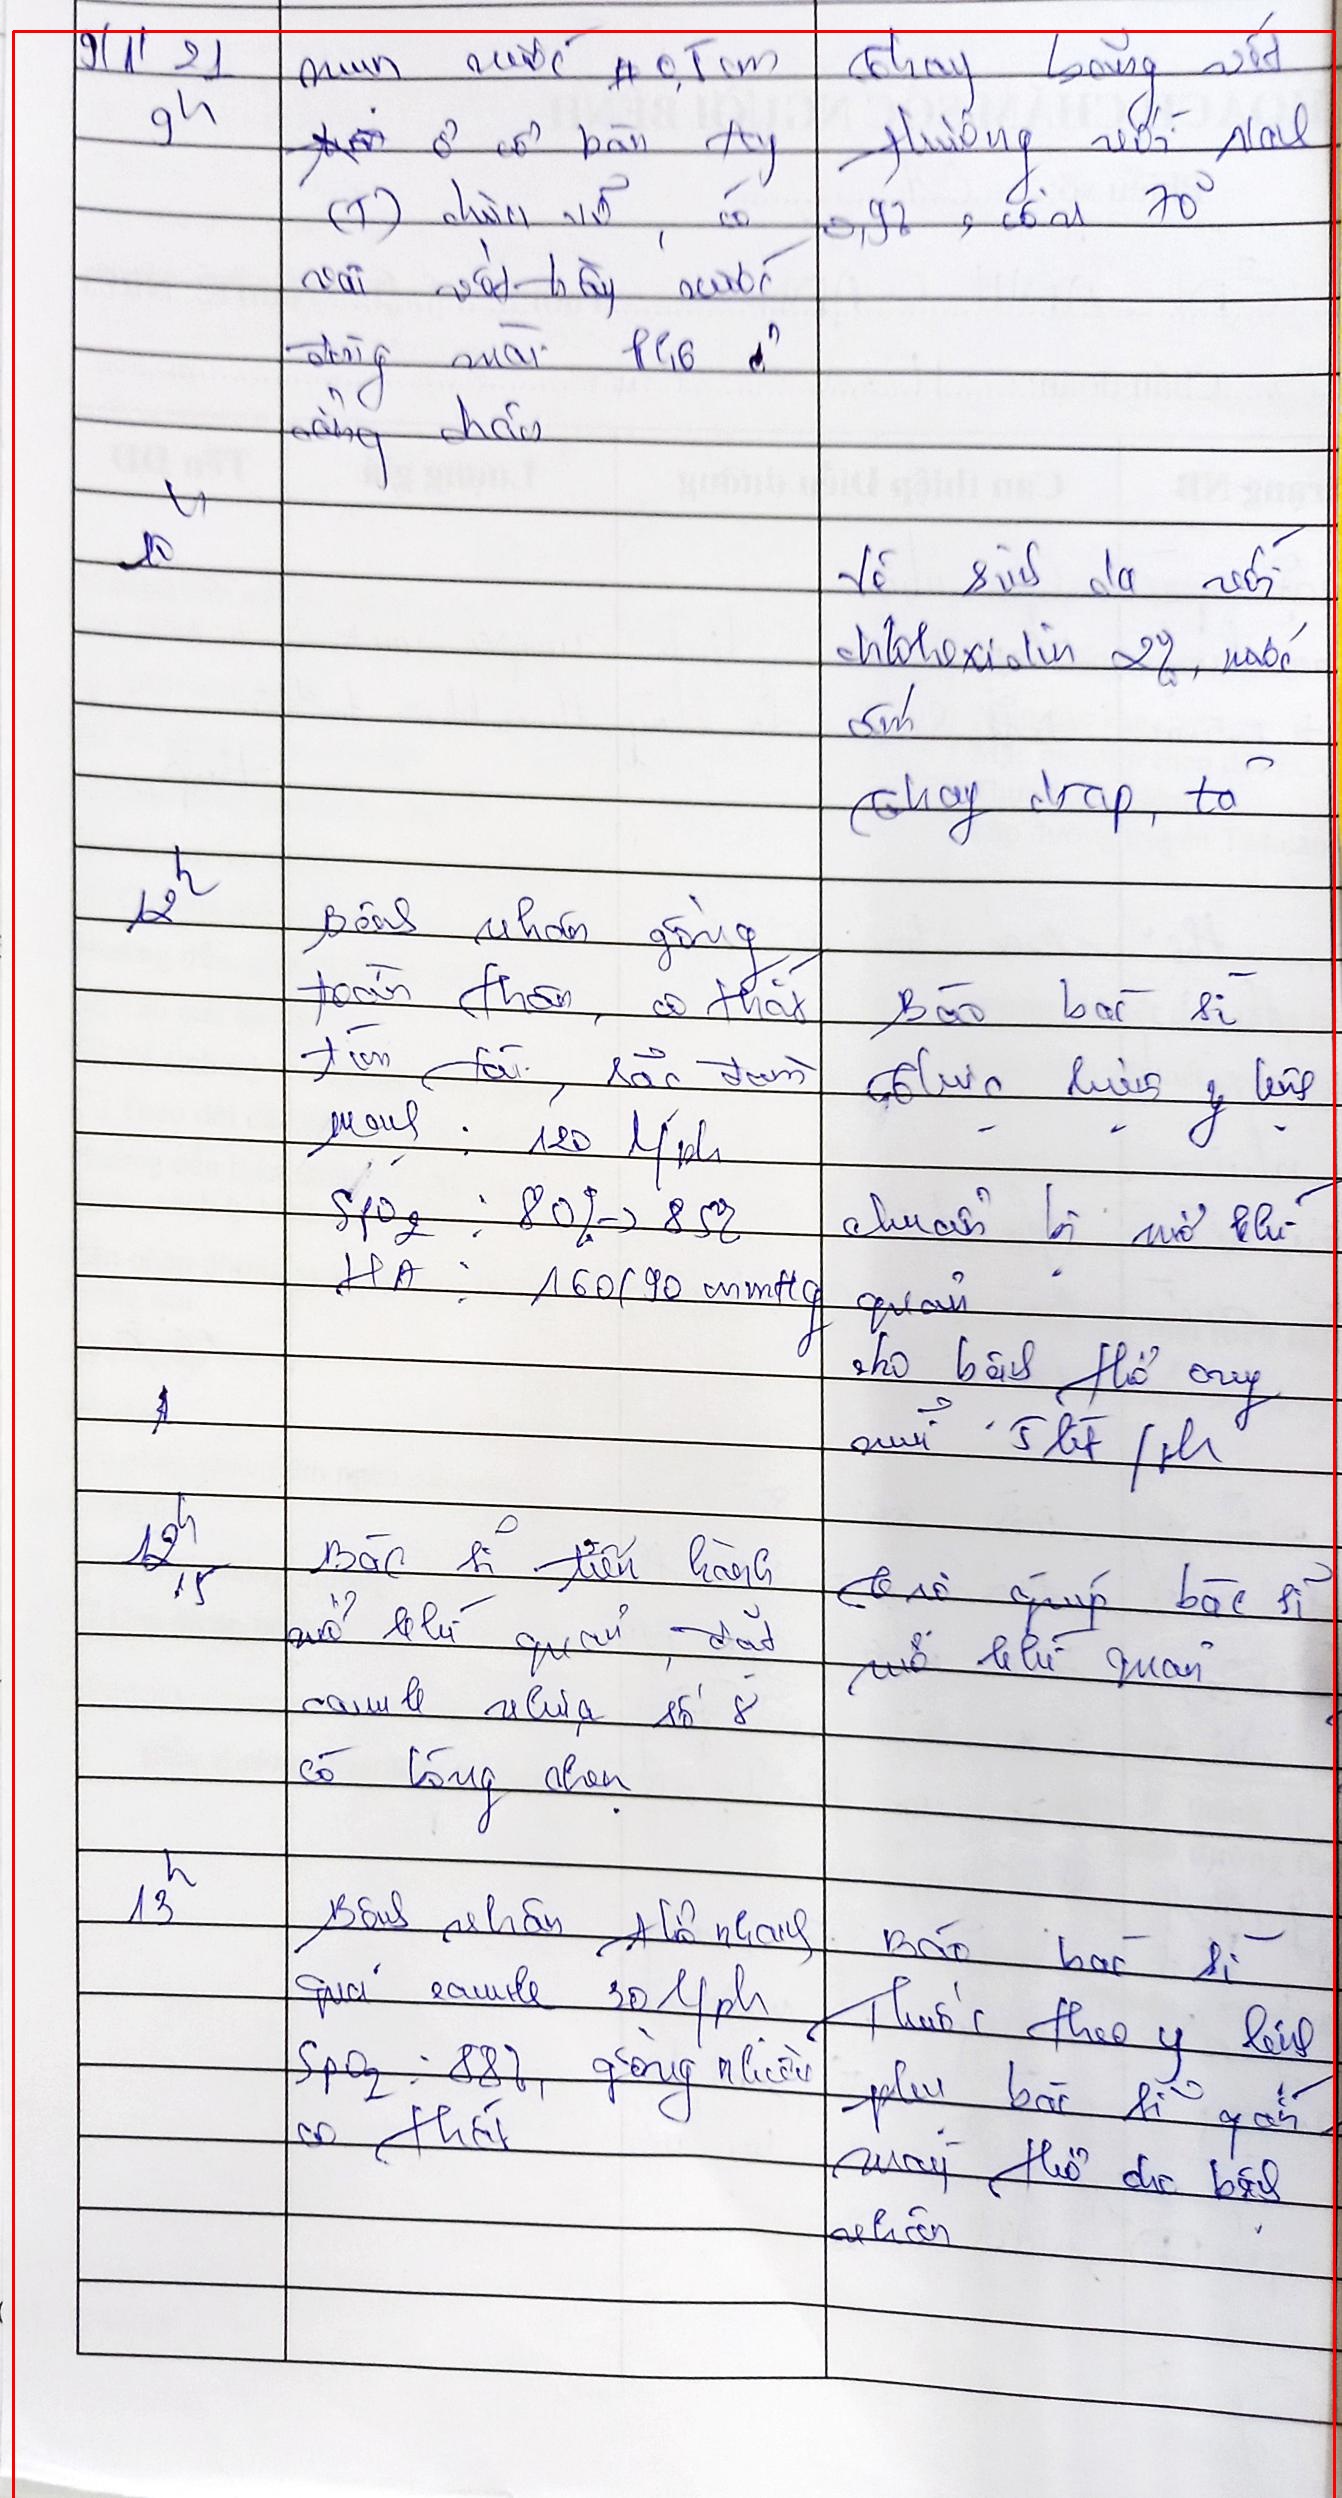 9/1/21
9h
mụn nước # 0,5cm
ở cổ bàn tay
(T) chưa vỡ, có
vài vết trầy nước
đóng mài ở
cẳng chân
Thay băng vết
thương với NaCl
0,9%, cồn 70°
10h
Vệ sinh da với
chlohexidin 2%, nước
ấm
Thay drap, tã
12h
Bệnh nhân gồng
toàn thân, co thắt
tím tái, sắc đàm
Mạch : 120 l/ph
SpO2 : 80% -> 85%
HA : 160/90 mmHg
Báo bác sĩ
Thực hiện y lệnh
chuẩn bị mở khí
quản
cho bệnh thở oxy
mũi 5 lít/ph
12h
15
Bác sĩ tiến hành
mở khí quản, đặt
canule nhựa số 8
có bóng chèn
Trợ giúp bác sĩ
mở khí quản
13h
Bệnh nhân thở nhanh
qua canule 30 l/ph
SpO2 : 88%, gồng nhiều
co thắt
Báo bác sĩ
Thuốc theo y lệnh
phụ bác sĩ gắn
máy thở cho bệnh
nhân